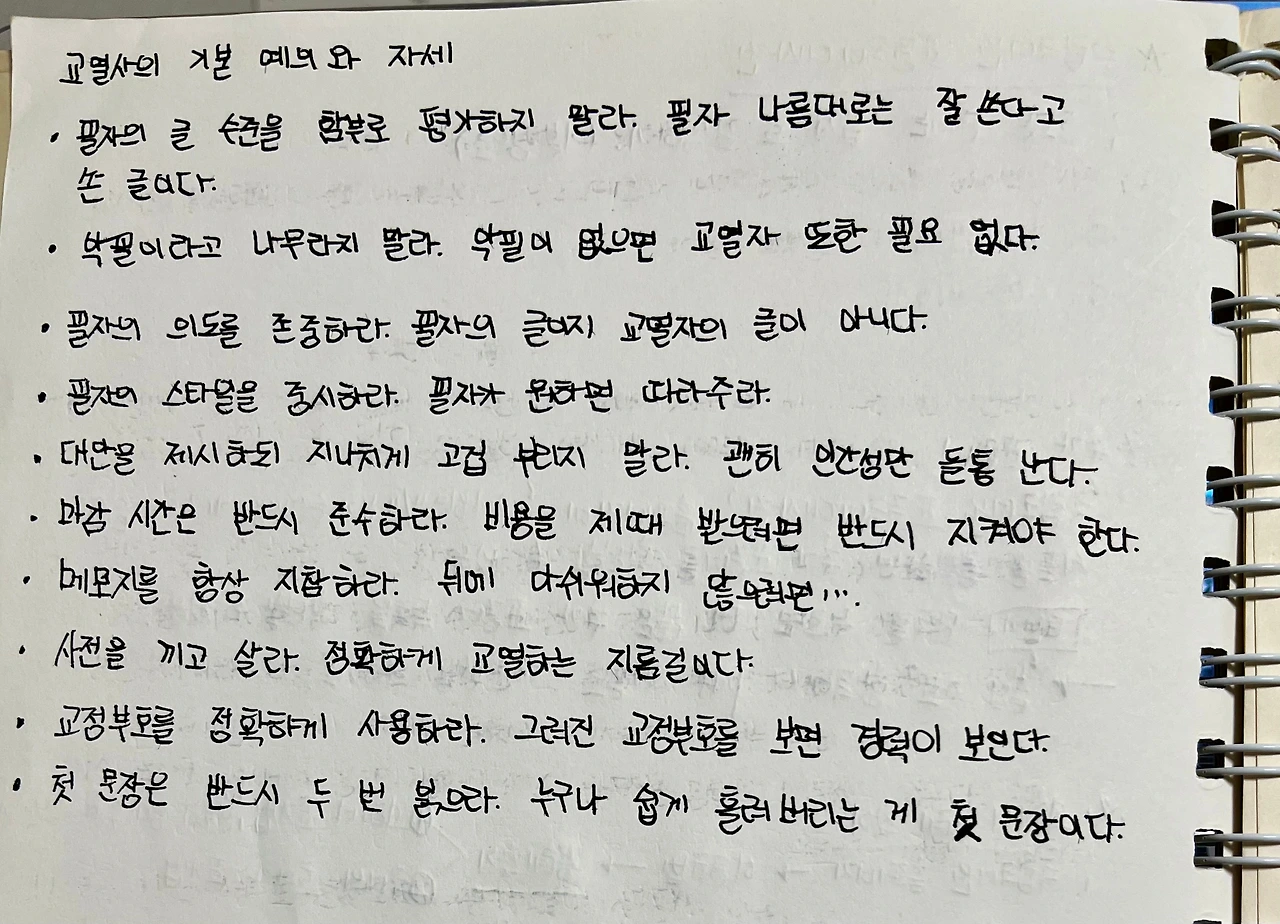 교열사의 기본 예의와 자세
• 필자의 글 수준을 함부로 평가하지 말라. 필자 나름대로는 잘 쓴다고
쓴 글이다.
• 악필이라고 나무라지 말라. 악필이 없으면 교열자 또한 필요 없다.
• 필자의 의도를 존중하라. 필자의 글이지 교열자의 글이 아니다.
• 필자의 스타일을 중시하라. 필자가 원하면 따라주라.
• 대안을 제시하되 지나치게 고집 부리지 말라. 괜히 인간성만 들통 난다.
• 마감 시간은 반드시 준수하라. 비용을 제때 받으려면 반드시 지켜야 한다.
• 메모지를 항상 지참하라. 뒤에 아쉬워하지 않으려면….
• 사전을 끼고 살라. 정확하게 교열하는 지름길이다.
• 교정부호를 정확하게 사용하라. 그려진 교정부호를 보면 경력이 보인다.
• 첫 문장은 반드시 두 번 읽으라. 누구나 쉽게 흘려버리는 게 첫 문장이다.